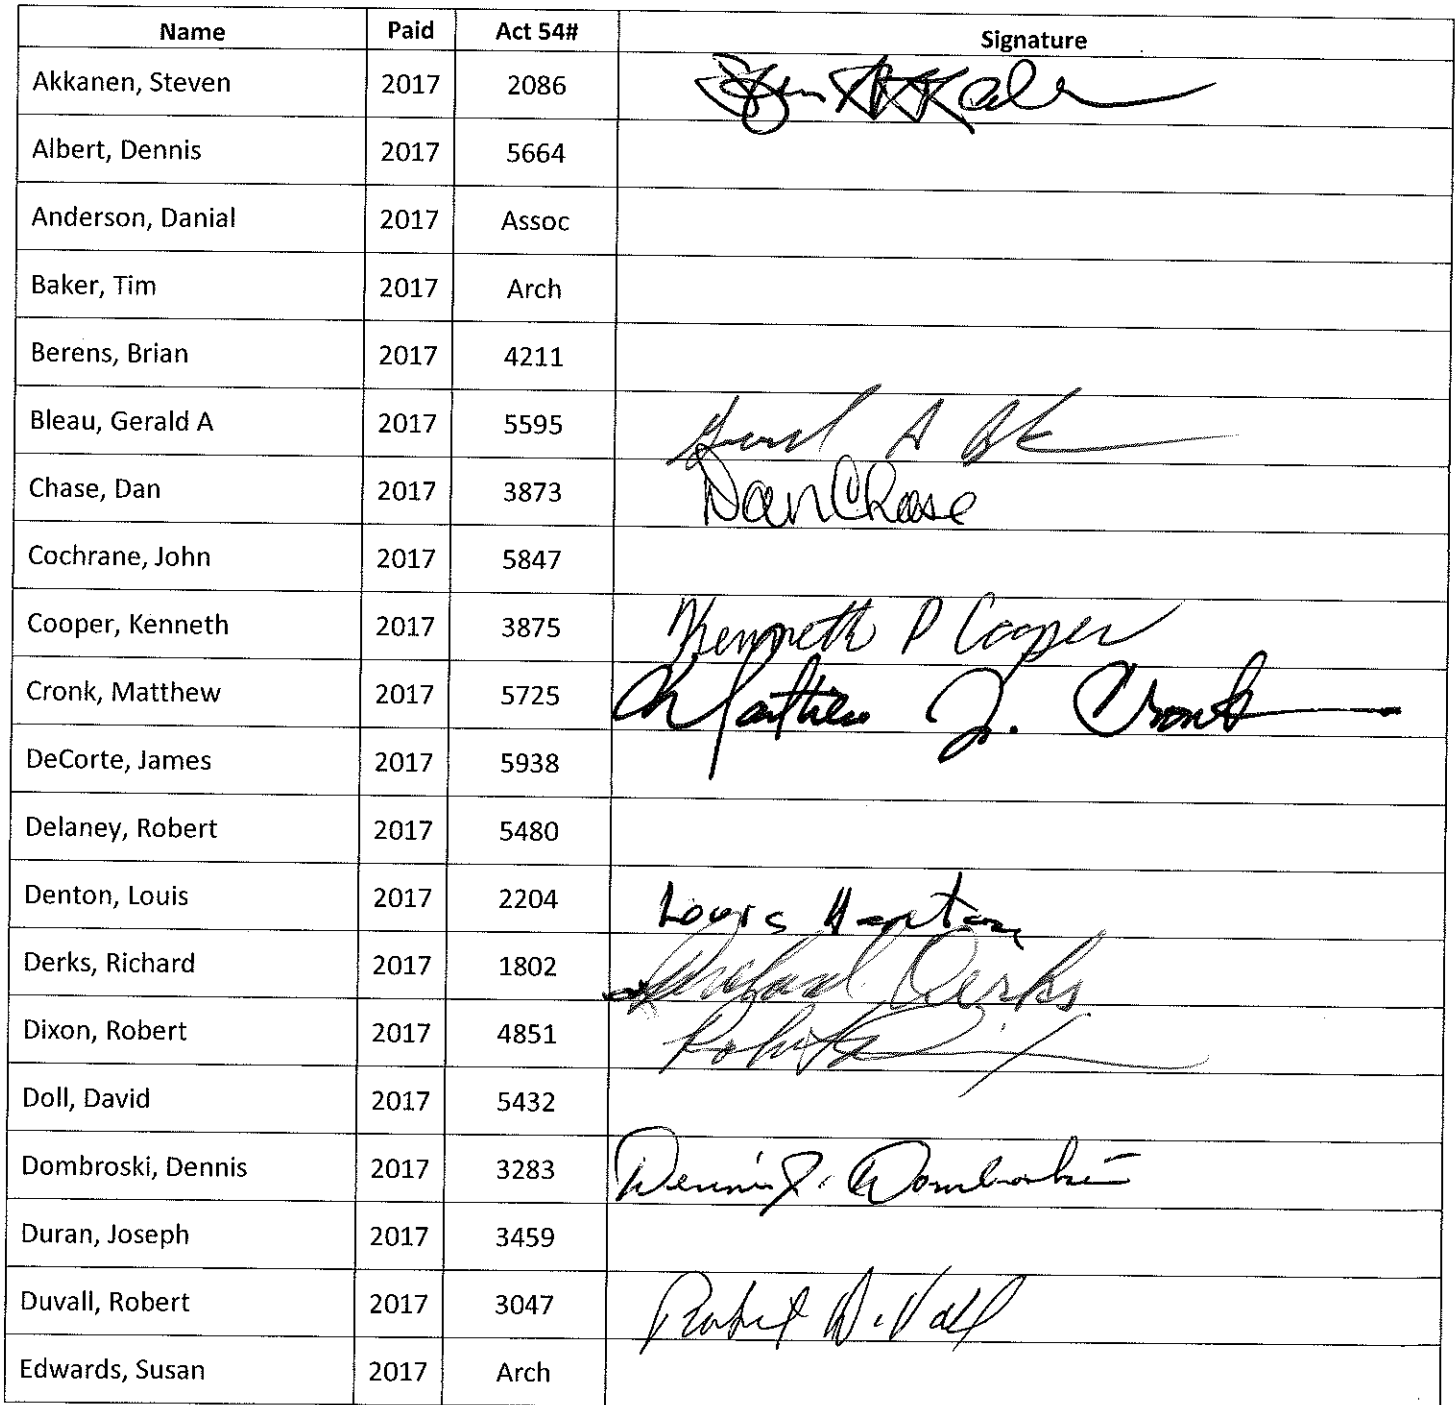 Name Paid Act 54# Signature
Akkanen, Steven 2017 2086
Albert, Dennis 2017 5664
Anderson, Danial 2017 Assoc
Baker, Tim 2017 Arch
Berens, Brian 2017 4211
Bleau, Gerald A 2017 5595
Chase, Dan 2017 3873 Dan Chase
Cochrane, John 2017 5847
Cooper, Kenneth 2017 3875 Kenneth P Cooper
Cronk, Matthew 2017 5725 Matthew J. Cronk
DeCorte, James 2017 5938
Delaney, Robert 2017 5480
Denton, Louis 2017 2204 Louis Denton
Derks, Richard 2017 1802 Richard Derks
Dixon, Robert 2017 4851
Doll, David 2017 5432
Dombroski, Dennis 2017 3283 Dennis J. Dombroski
Duran, Joseph 2017 3459
Duvall, Robert 2017 3047
Edwards, Susan 2017 Arch